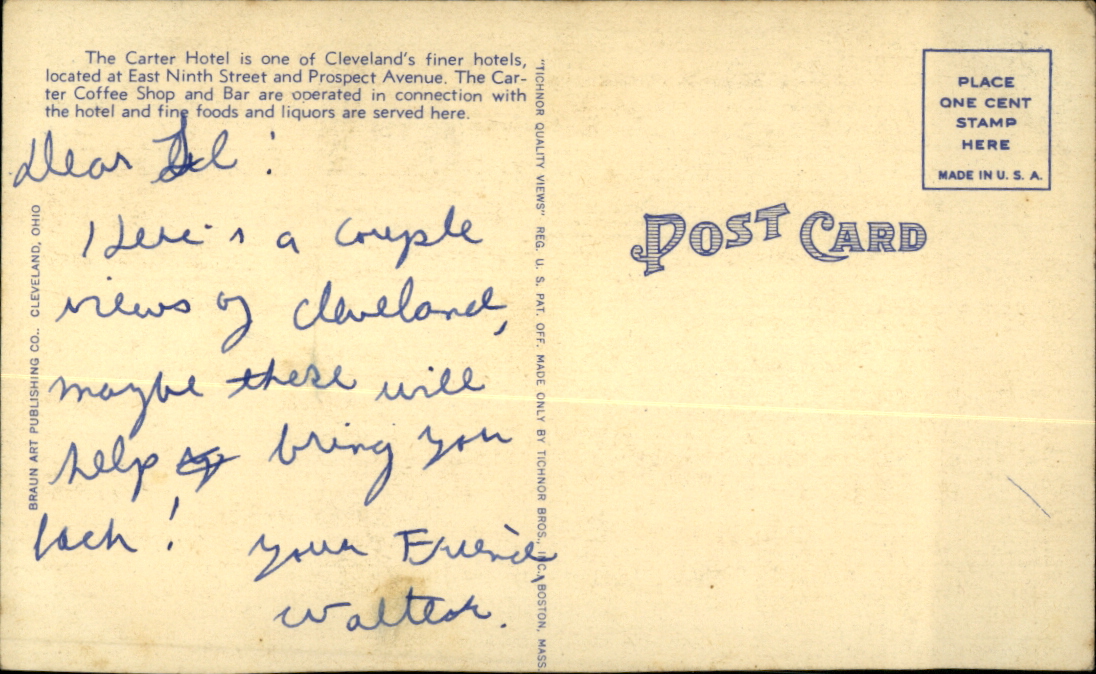 The Carter Hotel is one of Cleveland's finer hotels,
located at East Ninth Street and Prospect Avenue. The Car-
ter Coffee Shop and Bar are operated in connection with
the hotel and fine foods and liquors are served here.
Dear
Here's a couple
views of Cleveland,
maybe these will
help bring you
back!
your Friend,
Walter.
BRAUN ART PUBLISHING CO., CLEVELAND, OHIO
"TICHNOR QUALITY VIEWS" REG. U. S. PAT. OFF. MADE ONLY BY TICHNOR BROS., INC., BOSTON, MASS.
POST CARD
PLACE
ONE CENT
STAMP
HERE
MADE IN U. S. A.